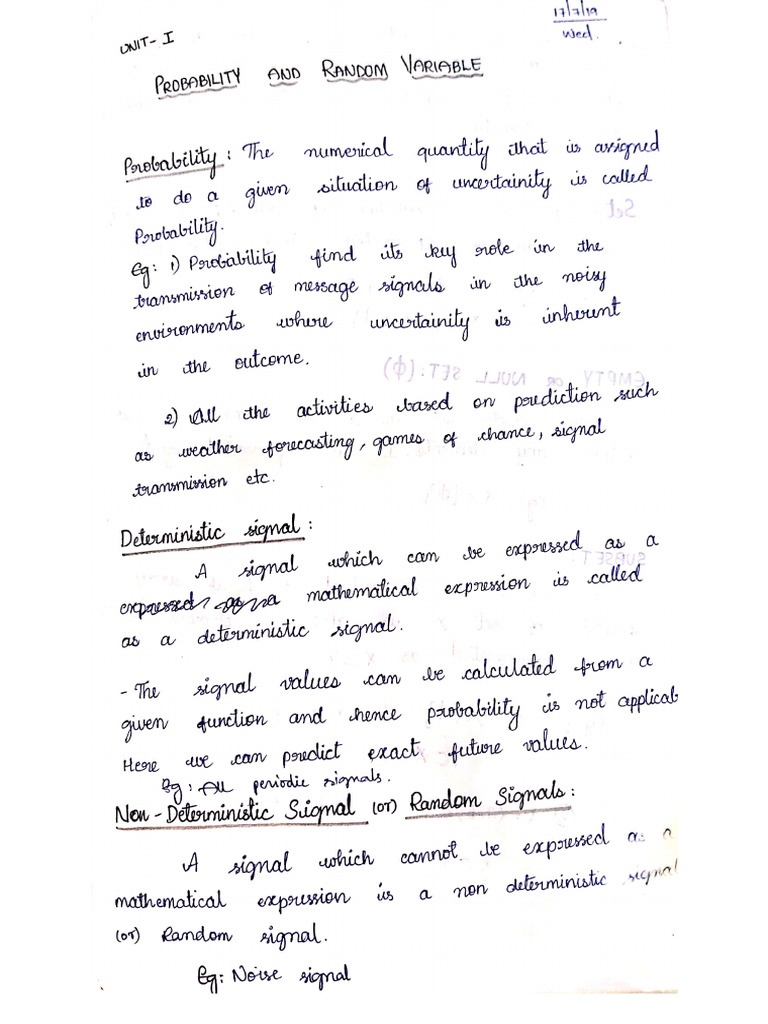 17/7/19
Wed.
UNIT- I
PROBABILITY AND RANDOM VARIABLE
Probability: The numerical quantity that is assigned
to do a given situation of uncertainity is called
Probability.
Eg: 1) Probability find its key role in the
transmission of message signals in the noisy
environments where uncertainity is inherent
in the outcome.
2) All the activities based on prediction such
as weather forecasting, games of chance, signal
transmission etc.
Deterministic signal:
A signal which can be expressed as a
expressed as a mathematical expression is called
as a deterministic signal.
- The signal values can be calculated from a
given function and hence probability is not applicab
Here we can predict exact future values.
Eg: All periodic signals.
Non-Deterministic Signal (or) Random Signals:
A signal which cannot be expressed as a
mathematical expression is a non deterministic signal
(or) Random signal.
Eg: Noise signal